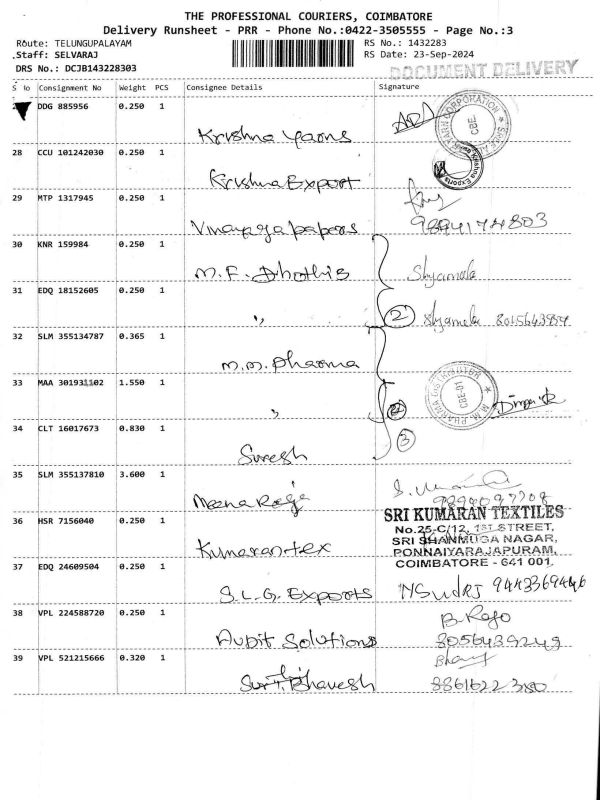 THE PROFESSIONAL COURIERS, COIMBATORE
Delivery Runsheet - PRR - Phone No.:0422-3505555 - Page No.:3
Route: TELUNGUPALAYAM RS No.: 1432283
.Staff: SELVARAJ RS Date: 23-Sep-2024
DRS No.: DCJB143228303
DOCUMENT DELIVERY
S No Consignment No Weight PCS Consignee Details Signature
DDG 885956 0.250 1
Krishna Yarns
28 CCU 101242030 0.250 1
Krishna Export
29 MTP 1317945 0.250 1
Vinayaga papers 9894174803
30 KNR 159984 0.250 1
M.F. Dhothis Shyamala
31 EDQ 18152605 0.250 1
" 2 Shyamala
32 SLM 355134787 0.365 1
M.M. Pharma
33 MAA 301931102 1.550 1
"
34 CLT 16017673 0.830 1
Suresh 3
35 SLM 355137810 3.600 1
Meena Raja
SRI KUMARAN TEXTILES
36 HSR 7156040 0.250 1
No.25-C/12, 1ST STREET,
SRI SHANMUGA NAGAR,
Kumaran tex
PONNAIYARAJAPURAM,
COIMBATORE - 641 001.
37 EDQ 24609504 0.250 1
S.L.G. Exports 9443369446
38 VPL 224588720 0.250 1
B. Rajo
Aubit Solutions 8056439249
39 VPL 521215666 0.320 1
Bhavesh 8861622380